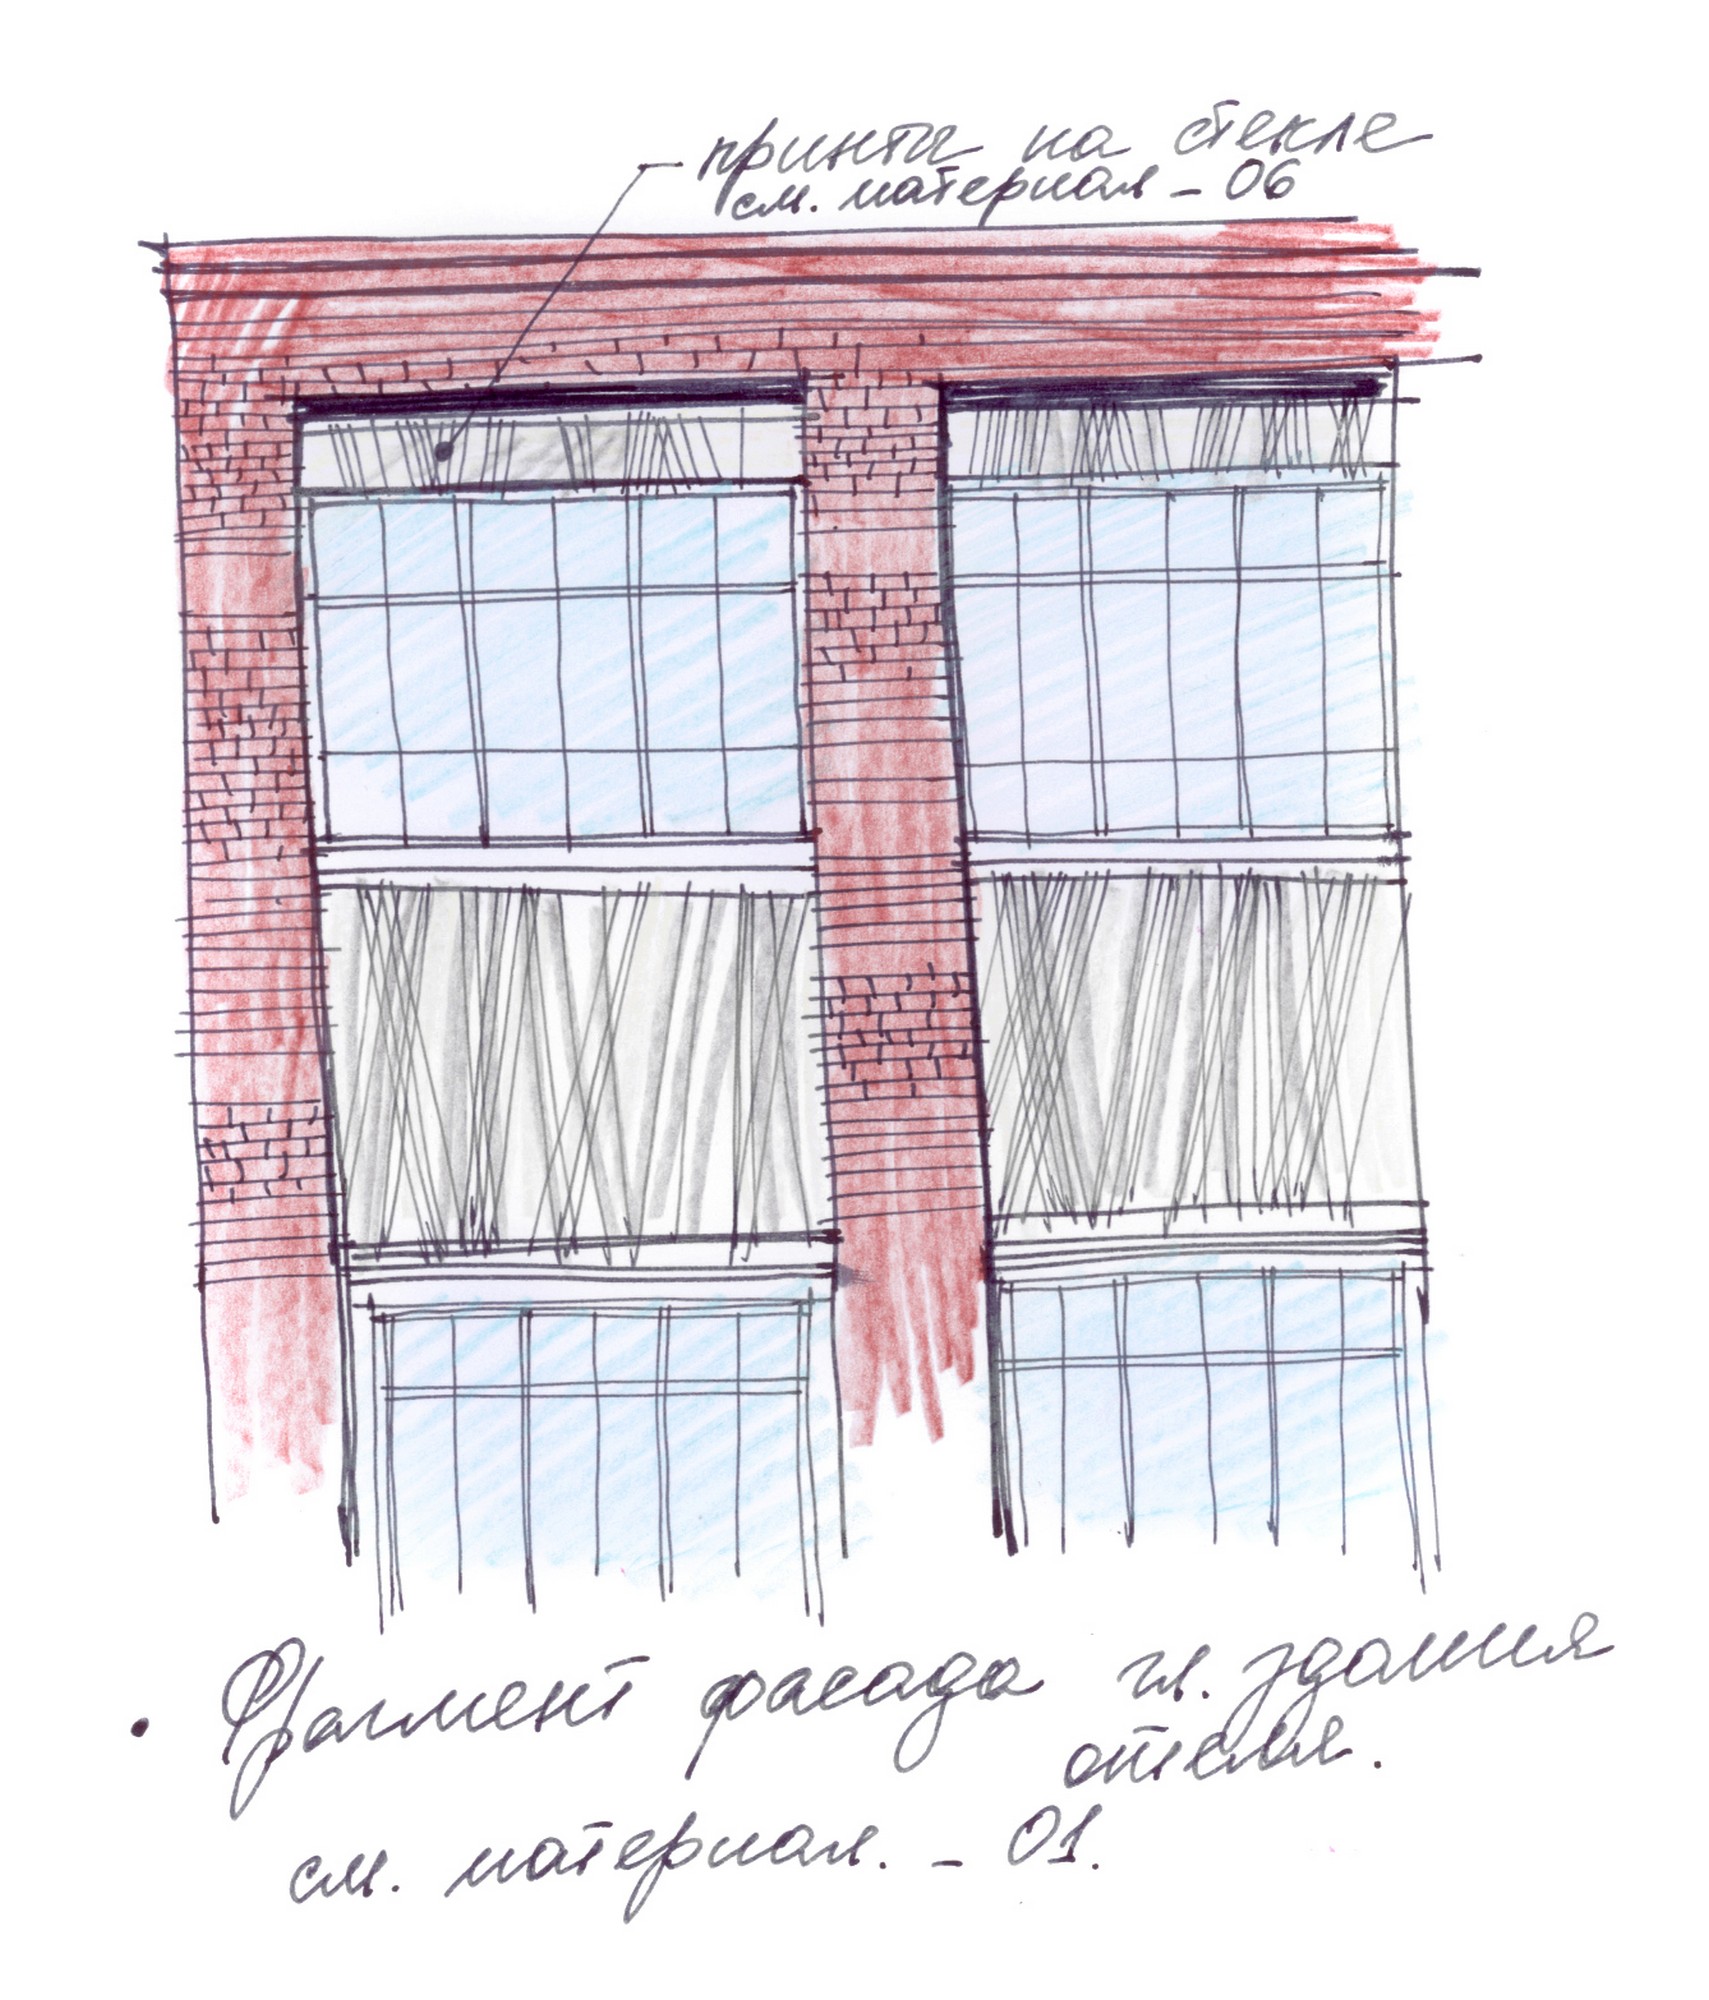 принты на стекле
см. материал - 06
• Фрагмент фасада гл. здания
отеля.
см. материал. - 01.